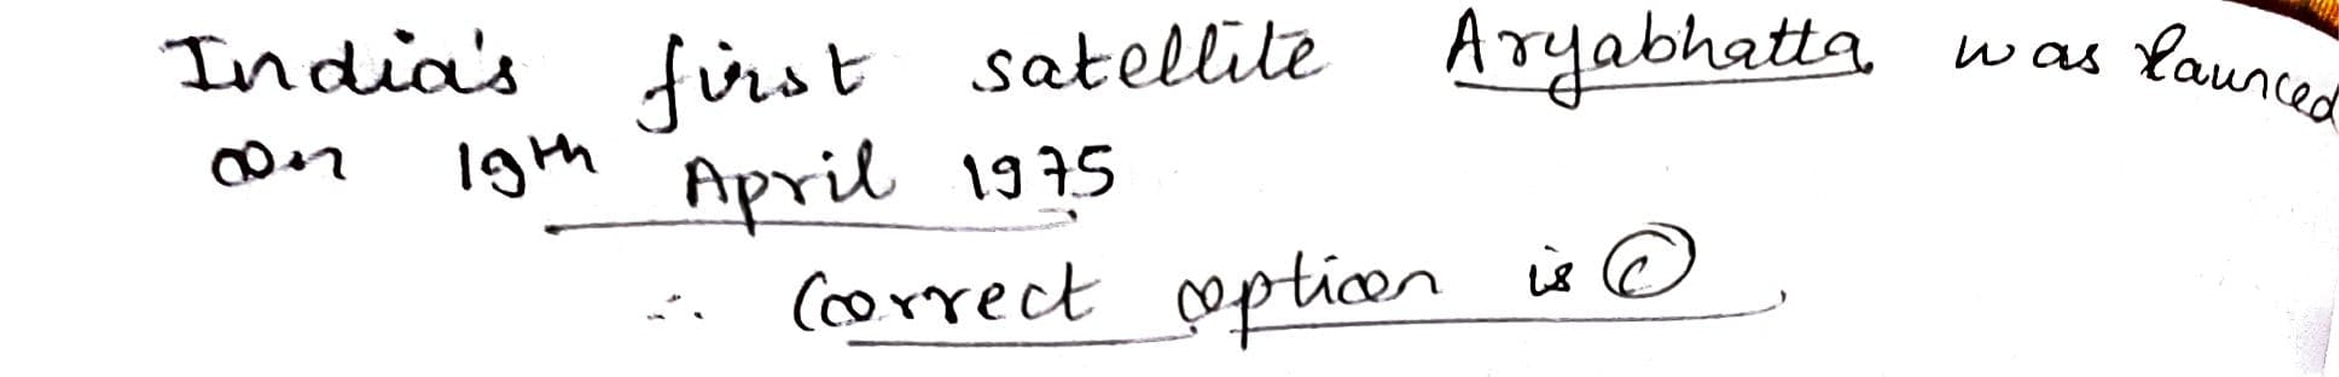 India's first satellite Aryabhatta was launced
on 19th April 1975
∴ Correct option is ©